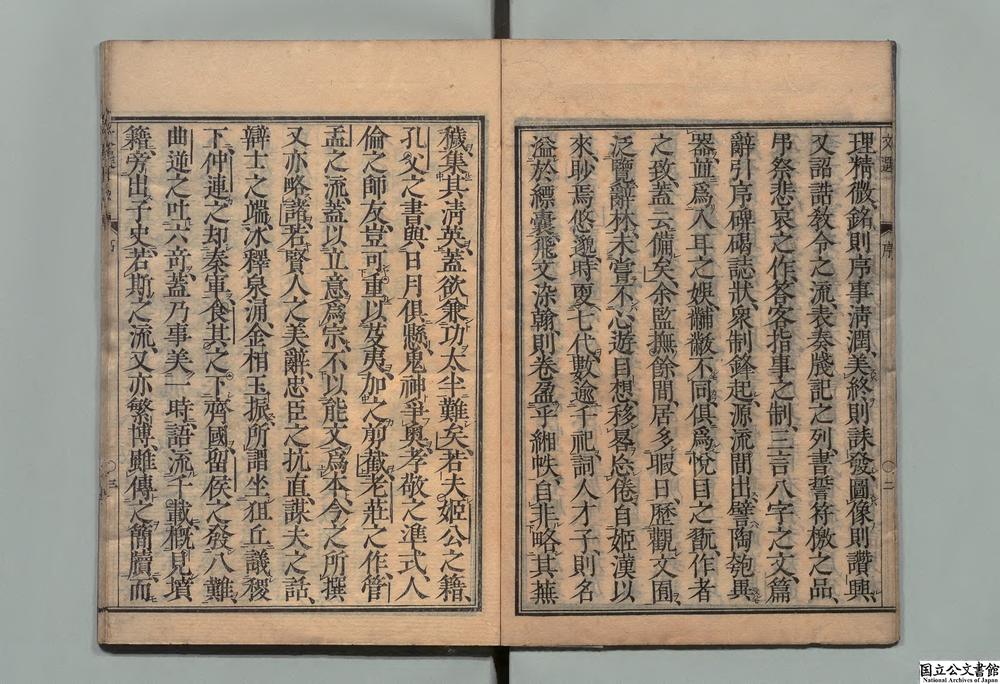 文選 序 二
理精微、銘則序事淸潤、美終則誄發、圖像則讚興、
又詔誥教令之流、表奏牋記之列、書誓符檄之品、
吊祭悲哀之作、荅客指事之制、三言八字之文、篇
辭引序、碑碣誌狀、衆制鋒起、源流間出、譬陶匏異
器、並爲入耳之娛、黼黻不同、俱爲悅目之翫、作者
之致、蓋云備矣、余監撫餘閒、居多暇日、歷觀文囿、
泛覽辭林、未嘗不心遊目想、移晷忘倦、自姬漢以
來、眇焉悠邈、時更七代、數逾千祀、詞人才子、則名
溢於縹囊、飛文染翰、則卷盈乎緗帙、自非略其蕪
穢、集其淸英、蓋欲兼功、太半難矣、若夫姬公之籍、
孔父之書、與日月俱懸、鬼神爭奧、孝敬之准式、人
倫之師友、豈可重以芟夷、加之前截、老莊之作、管
孟之流、蓋以立意爲宗、不以能文爲本、今之所撰
又亦略諸、若賢人之美辭、忠臣之抗直、謀夫之話、
辯士之端、冰釋泉涌、金相玉振、所謂坐狙丘議稷
下、仲連之却秦軍、食其之下齊國、留侯之發八難、
曲逆之吐六竒、蓋乃事美一時、語流千載、概見墳
籍、旁出子史、若斯之流、又亦繁博、雖傳之簡牘、而
三
国立公文書館
National Archives of Japan